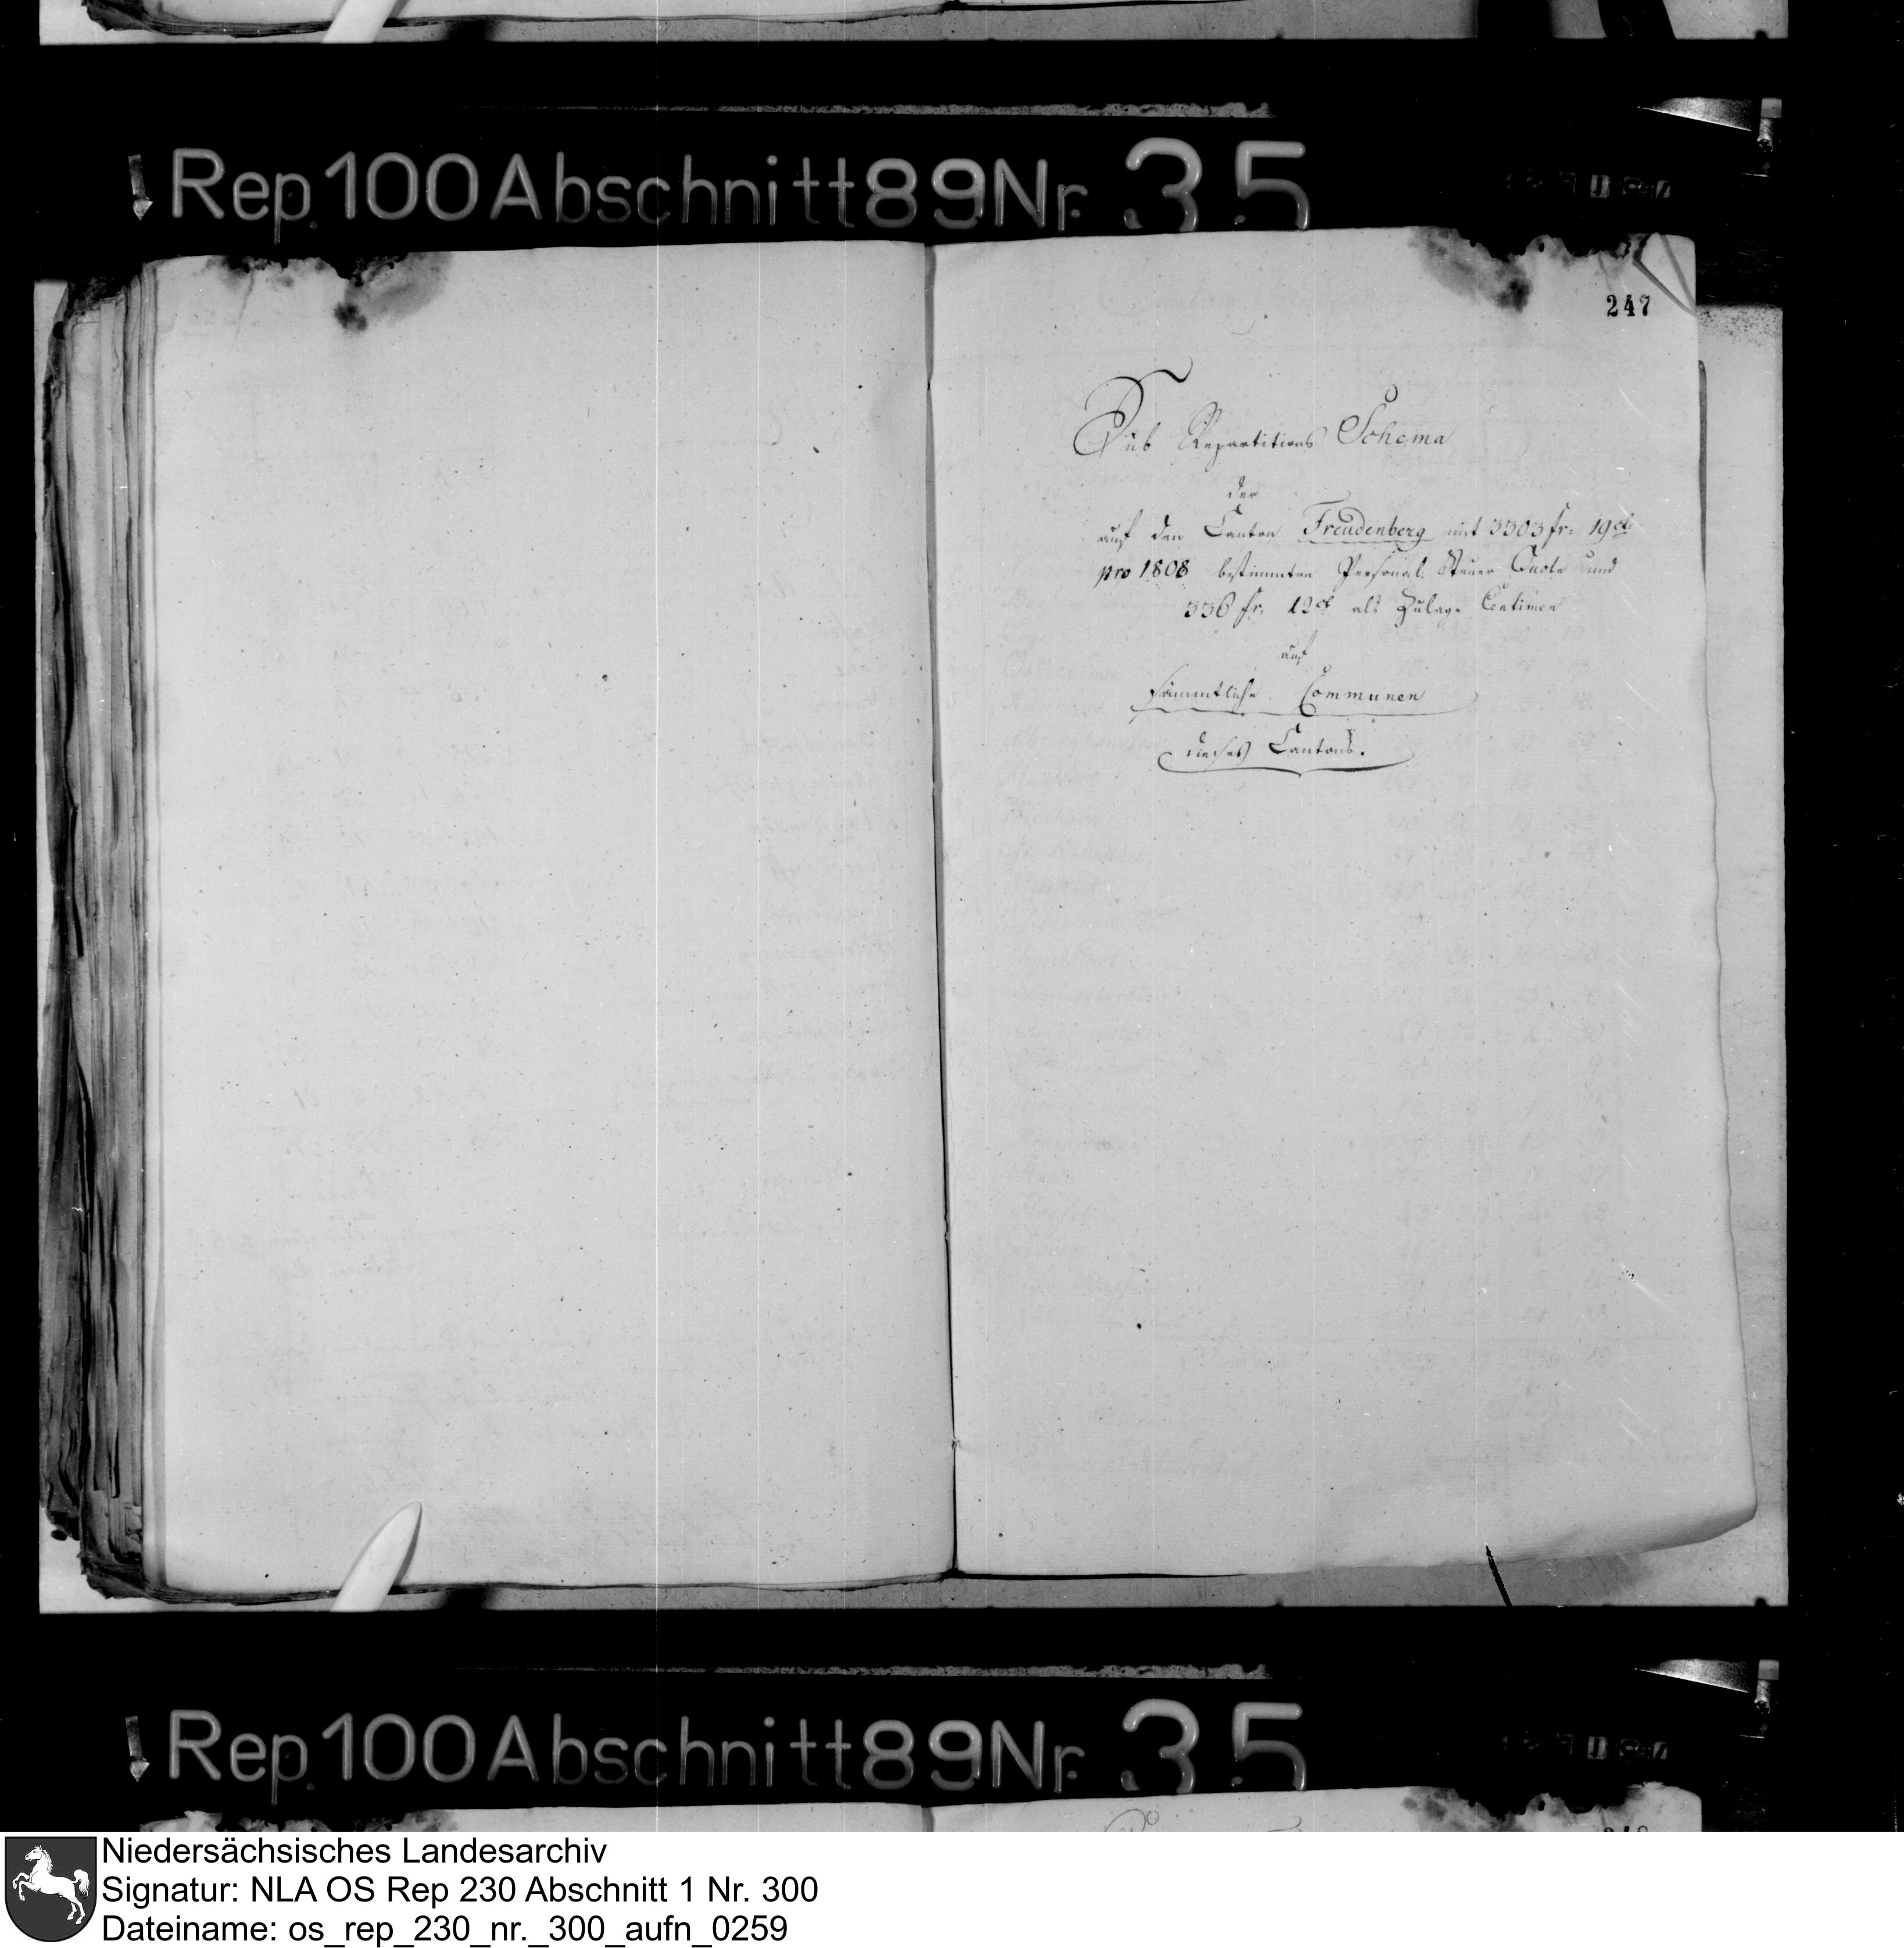 Rep. 100 Abschnitt 89 Nr. 35
247
Sub Repartitions Schema
der
auf den Canton Freudenberg mit 3303 fr: 19 ct
pro 1808 bestimmten Personal Steuer Quote und
336 fr. 12 ct als Zulage Centimen
auf
sämmtliche Communen
dieses Cantons.
Rep. 100 Abschnitt 89 Nr. 35
Niedersächsisches Landesarchiv
Signatur: NLA OS Rep 230 Abschnitt 1 Nr. 300
Dateiname: os_rep_230_nr._300_aufn_0259